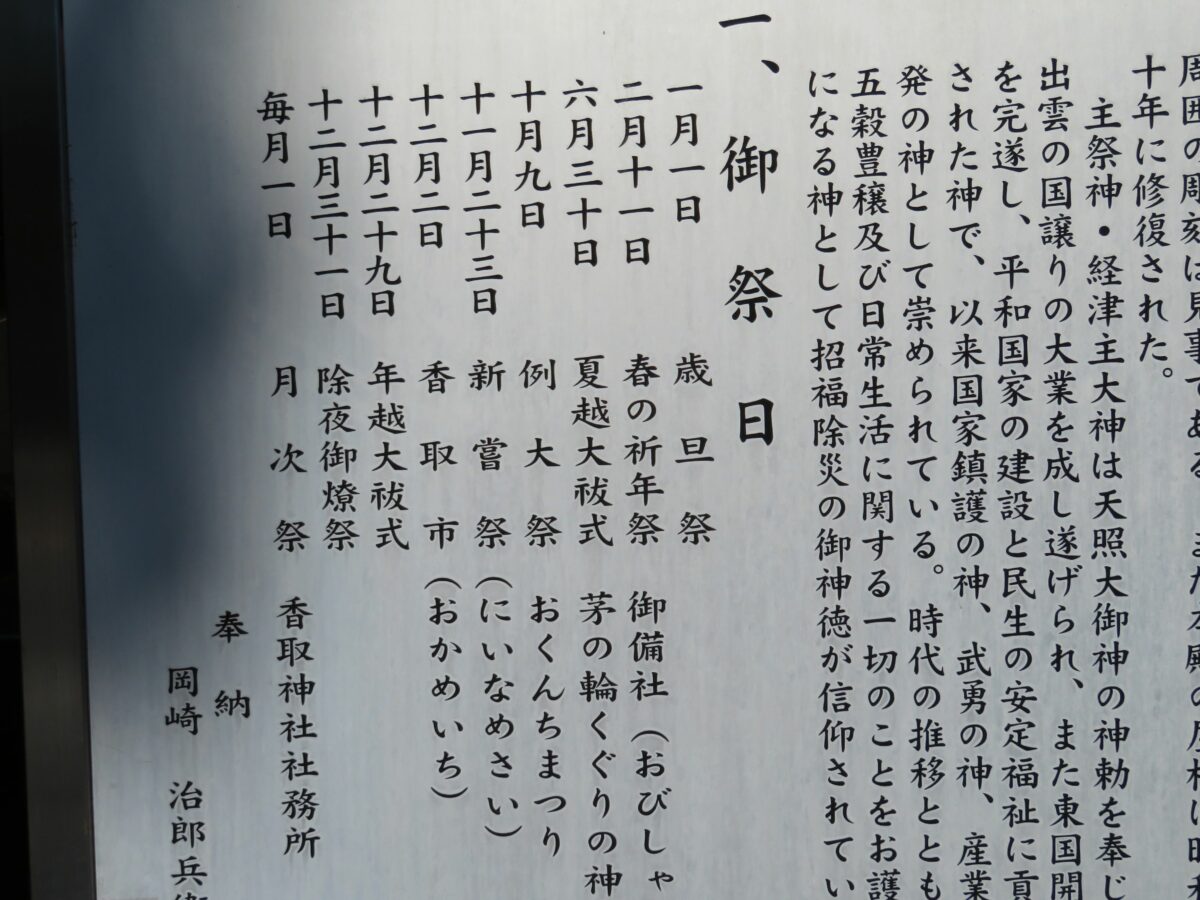 周囲の彫刻は見事である。また本殿の屋根は昭和
十年に修復された。
主祭神・経津主大神は天照大御神の神勅を奉じ
出雲の国譲りの大業を成し遂げられ、また東国開
を完遂し、平和国家の建設と民生の安定福祉に貢
された神で、以来国家鎮護の神、武勇の神、産業
発の神として崇められている。時代の推移ととも
五穀豊穣及び日常生活に関する一切のことをお護
になる神として招福除災の御神徳が信仰されてい
一、御祭日
一月一日 歳旦祭
二月十一日 春の祈年祭 御備社(おびしゃ
六月三十日 夏越大祓式 茅の輪くぐりの神
十月九日 例大祭 おくんちまつり
十一月二十三日 新嘗祭(にいなめさい)
十二月二日 香取市(おかめいち)
十二月二十九日 年越大祓式
十二月三十一日 除夜御燎祭
毎月一日 月次祭 香取神社社務所
奉納
岡崎 治郎兵衛